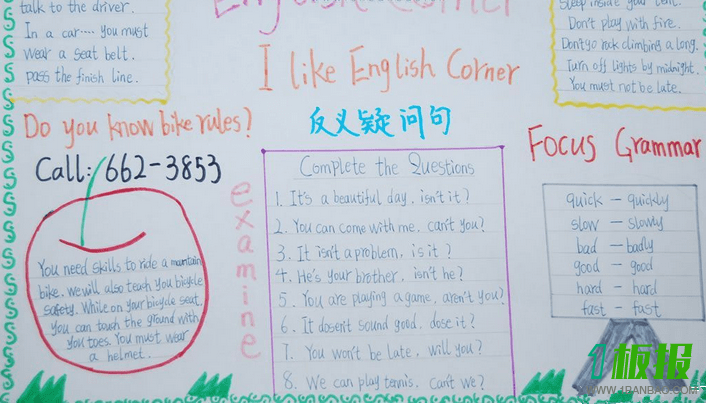 talk to the driver.
In a car.... you must
wear a seat belt.
pass the finish line.
English Corner
I like English Corner
反义疑问句
sleep inside your tent.
Don't play with fire.
Don't go rock climbing a long.
Turn off lights by midnight.
You must not be late.
Do you know bike rules?
Call: 662-3853
You need skills to ride a mountain
bike. we will also teach you bicycle
safety. While on your bicycle seat,
you can touch the ground with
you toes. You must wear
a helmet.
examine
Complete the Questions
1. It's a beautiful day, isn't it?
2. You can come with me, can't you?
3. It isn't a problem, is it?
4. He's your brother, isn't he?
5. You are playing a game, aren't you?
6. It dosen't sound good, dose it?
7. You won't be late, will you?
8. We can play tennis, can't we?
Focus Grammar
quick — quickly
slow — slowly
bad — badly
good — good
hard — hard
fast — fast
板报